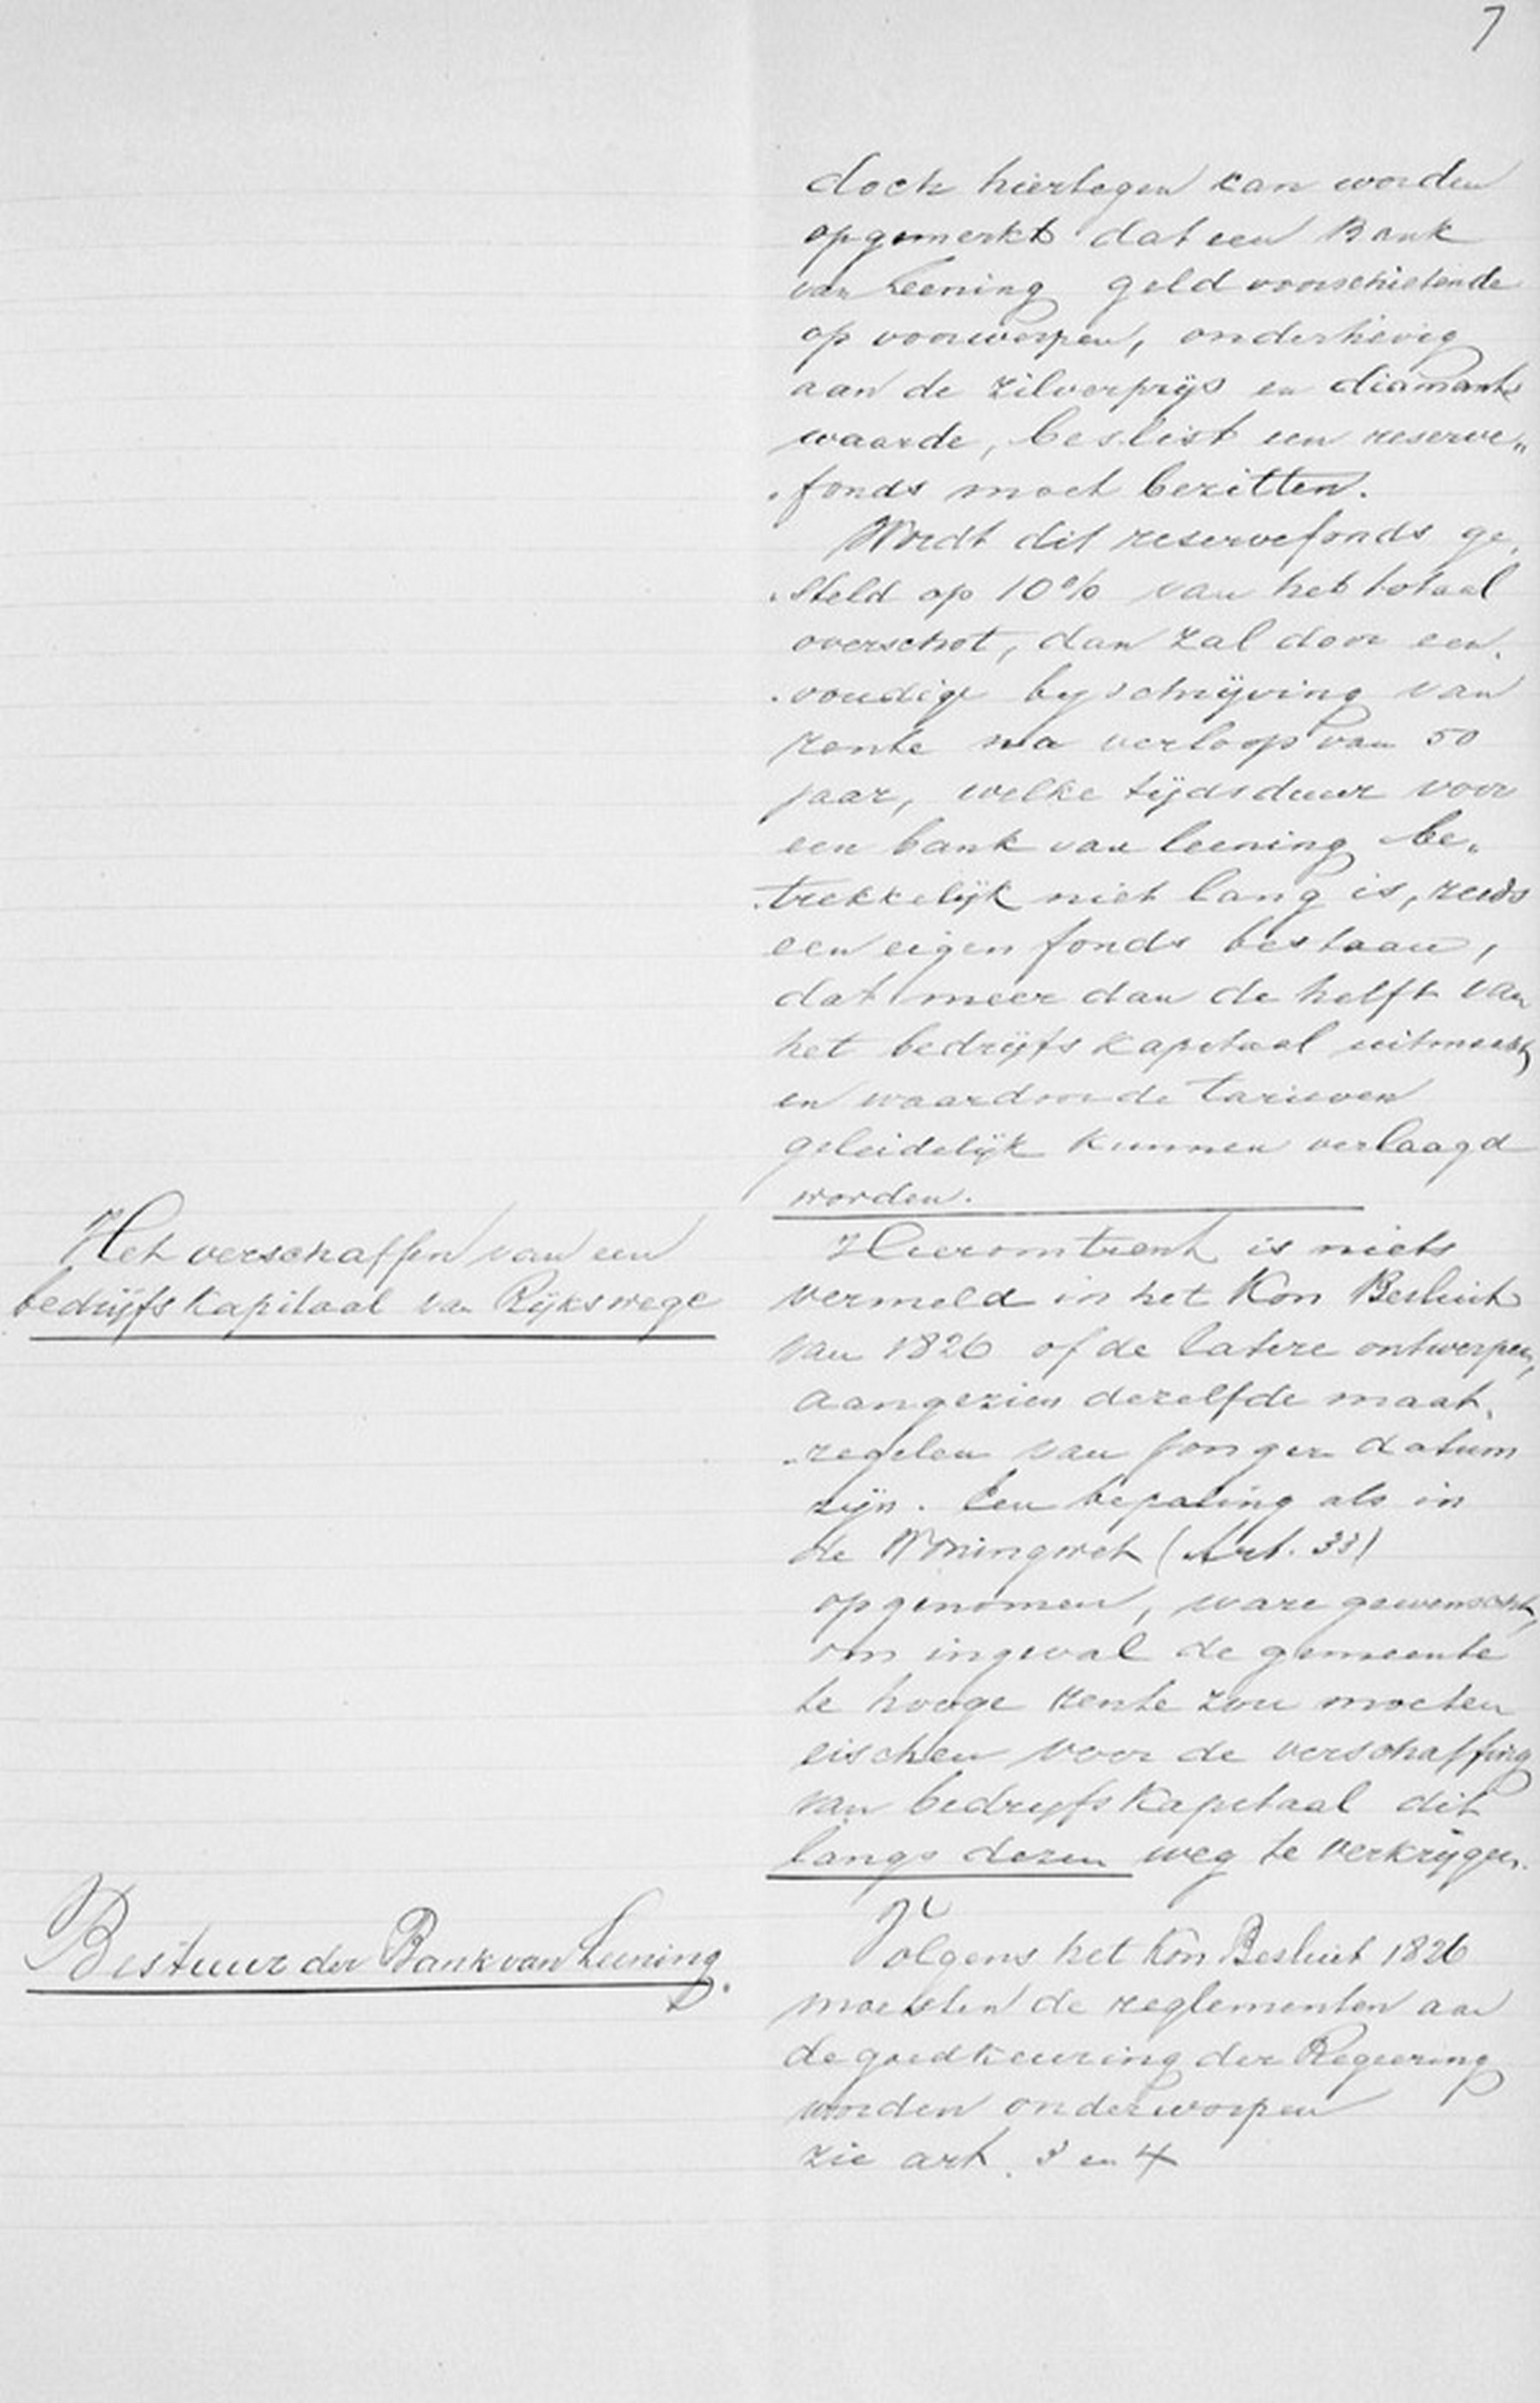 7
doch hiertegen kan worden
opgemerkt dat een Bank
van Leening geld voorschietende
op voorwerpen, onderhevig
aan de zilverprijs en diamant
waarde, beslist een reserve„
„fonds moet bezitten.
Wordt dit reservefonds ge„
„steld op 10% van het totaal
overschot, dan zal door een„
„voudige bijschrijving van
rente na verloop van 50
jaar, welke tijdsduur voor
een bank van leening be„
„trekkelijk niet lang is, reeds
een eigen fonds bestaan,
dat meer dan de helft van
het bedrijfskapitaal uitmaakt,
en waardoor de tarieven
geleidelijk kunnen verlaagd
worden.
Het verschaffen van een
bedrijfskapitaal van Rijkswege
Hieromtrent is niets
vermeld in het Kon Besluit
van 1826 of de latere ontwerpen,
aangezien dezelfde maat„
„regelen van jonger datum
zijn. Een bepaling als in
de Woningwet (Art. 33)
opgenomen, ware gewenscht,
om ingeval de gemeente
te hooge rente zou moeten
eischen voor de verschaffing
van bedrijfskapitaal dit
langs dezen weg te verkrijgen.
Bestuur der Bank van Leening.
Volgens het Kon Besluit 1826
moesten de reglementen aan
de goedkeuring der Regeering
worden onderworpen
zie art. 3 en 4